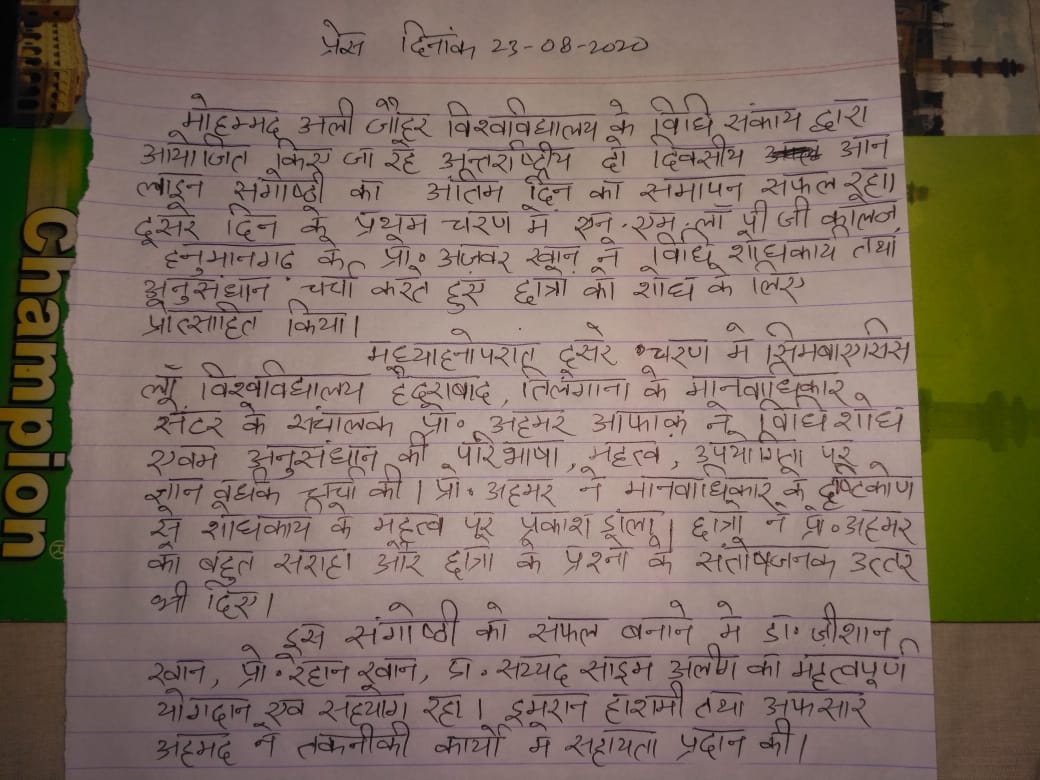 प्रेस दिनांक 23-08-2020
मोहम्मद अली जौहर विश्वविद्यालय के विधि संकाय द्वारा
आयोजित किए जा रहे अन्तर्राष्ट्रीय दो दिवसीय आन
लाइन संगोष्ठी का अंतिम दिन का समापन सफल रहा।
दूसरे दिन के प्रथम चरण में एन.एम. लॉ पी जी कालेज
हनुमानगढ के प्रो० अज़वर खान ने विधि शोधकार्य तथा
अनुसंधान चर्चा करते हुए छात्रो को शोध के लिए
प्रोत्साहित किया।
मध्याहनोपरांत दूसरे चरण मे सिमबाएसिस
लॉ विश्वविद्यालय हैदराबाद, तिलंगाना के मानवाधिकार
सेंटर के संचालक प्रो० अहमर आफाक़ ने विधि शोध
एवम अनुसंधान की परिभाषा, महत्व, उपयोगिता पर
ज्ञान वर्धक चर्चा की। प्रो० अहमर ने मानवाधिकार के दृष्टिकोण
से शोधकार्य के महत्व पर प्रकाश डाला। छात्रो ने प्रो०अहमर
को बहुत सराहा और छात्रो के प्रश्नो के संतोषजनक उत्तर
भी दिए।
इस संगोष्ठी को सफल बनाने मे डा० ज़ीशान
खान, प्रो०रेहान खान, डा. सय्यद साइम अलीग का महत्वपूर्ण
योगदान एवं सहयोग रहा। इमरान हाशमी तथा अफसार
अहमद ने तकनीकी कार्यो मे सहायता प्रदान की।
Champion
®